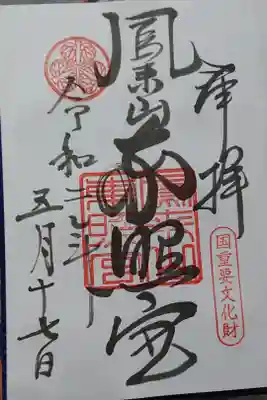 奉拝
国重要文化財
鳳来山東照宮
令和 五月十七日